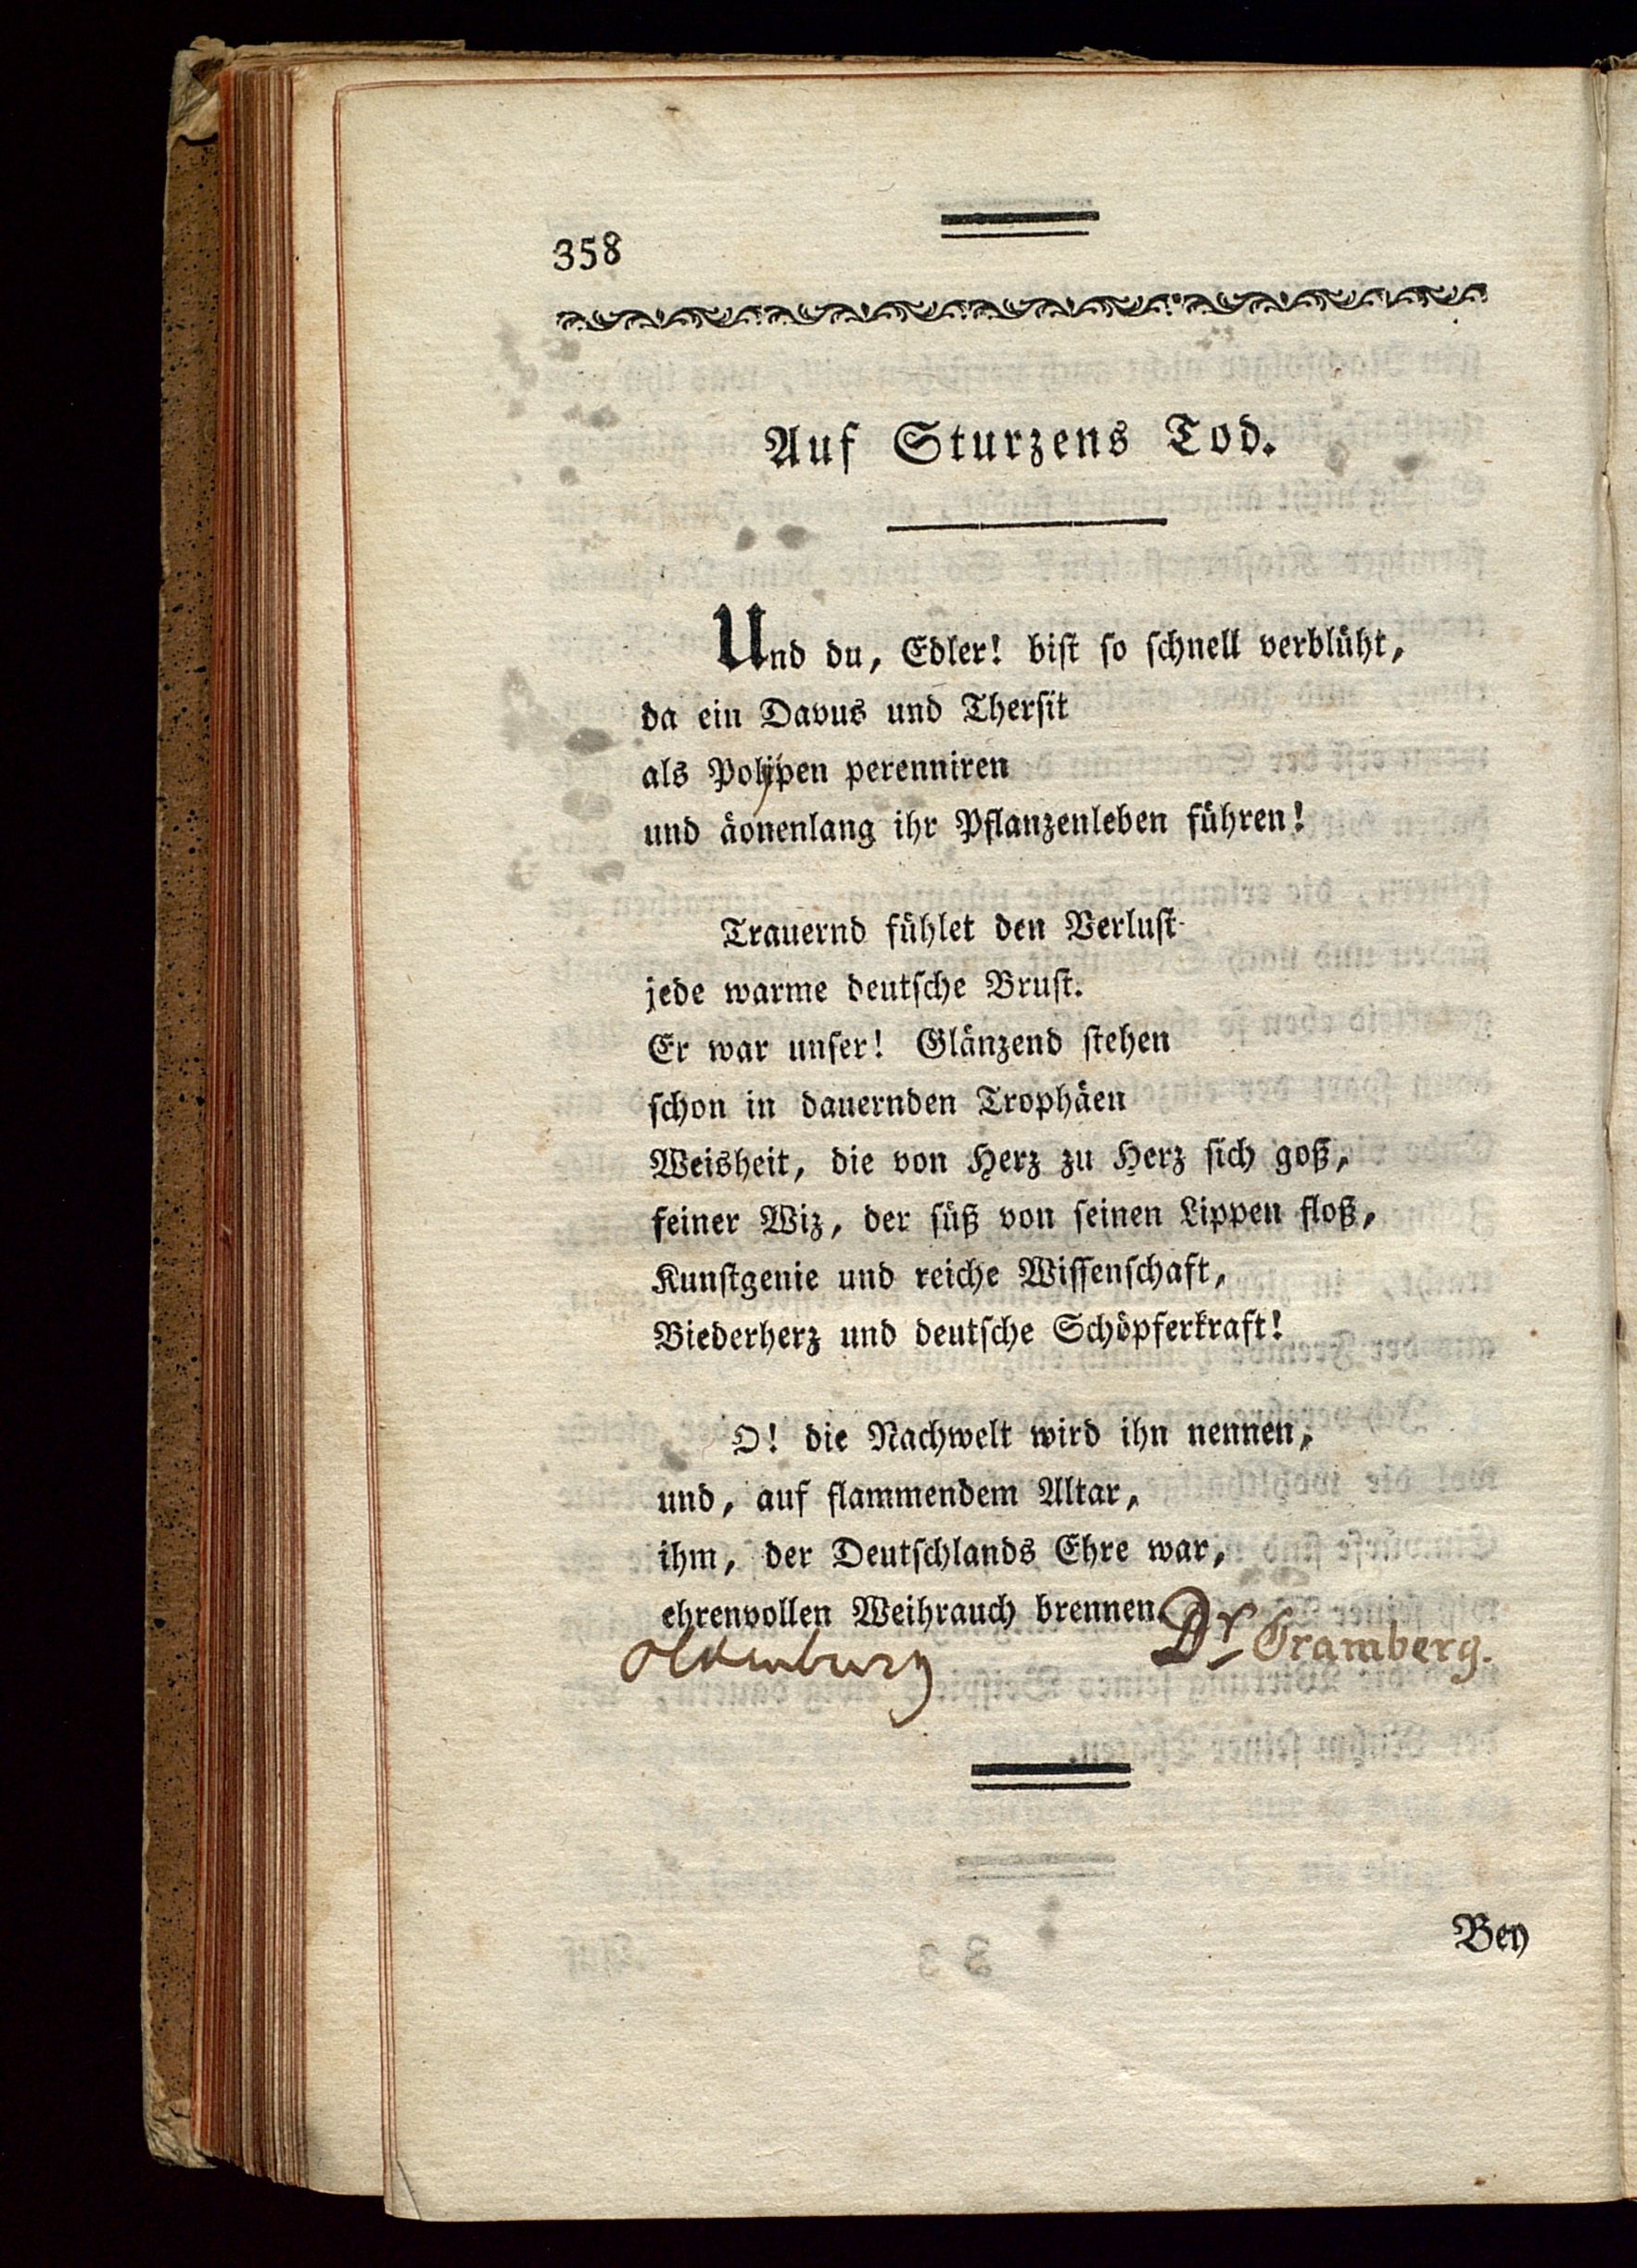 358
Auf Sturzens Tod.
Und du, Edler! bist so schnell verblüht,
da ein Davus und Thersit
als Polypen perenniren
und äonenlang ihr Pflanzenleben führen!
Trauernd fühlet den Verlust
jede warme deutsche Brust.
Er war unser! Glänzend stehen
schon in dauernden Trophäen
Weisheit, die von Herz zu Herz sich goß,
feiner Wiz, der süß von seinen Lippen floß,
Kunstgenie und reiche Wissenschaft,
Biederherz und deutsche Schöpferkraft!
O! die Nachwelt wird ihn nennen,
und, auf flammendem Altar,
ihm, der Deutschlands Ehre war,
ehrenvollen Weihrauch brennen.
Oldenburg Dr Gramberg.
Bey